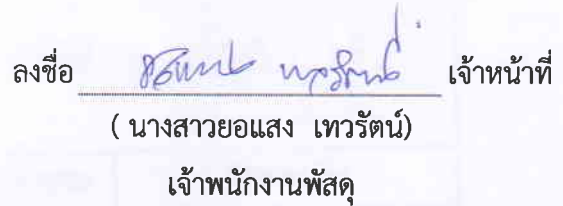 ลงชื่อ เจ้าหน้าที่
( นางสาวยอแสง เทวรัตน์)
เจ้าพนักงานพัสดุ